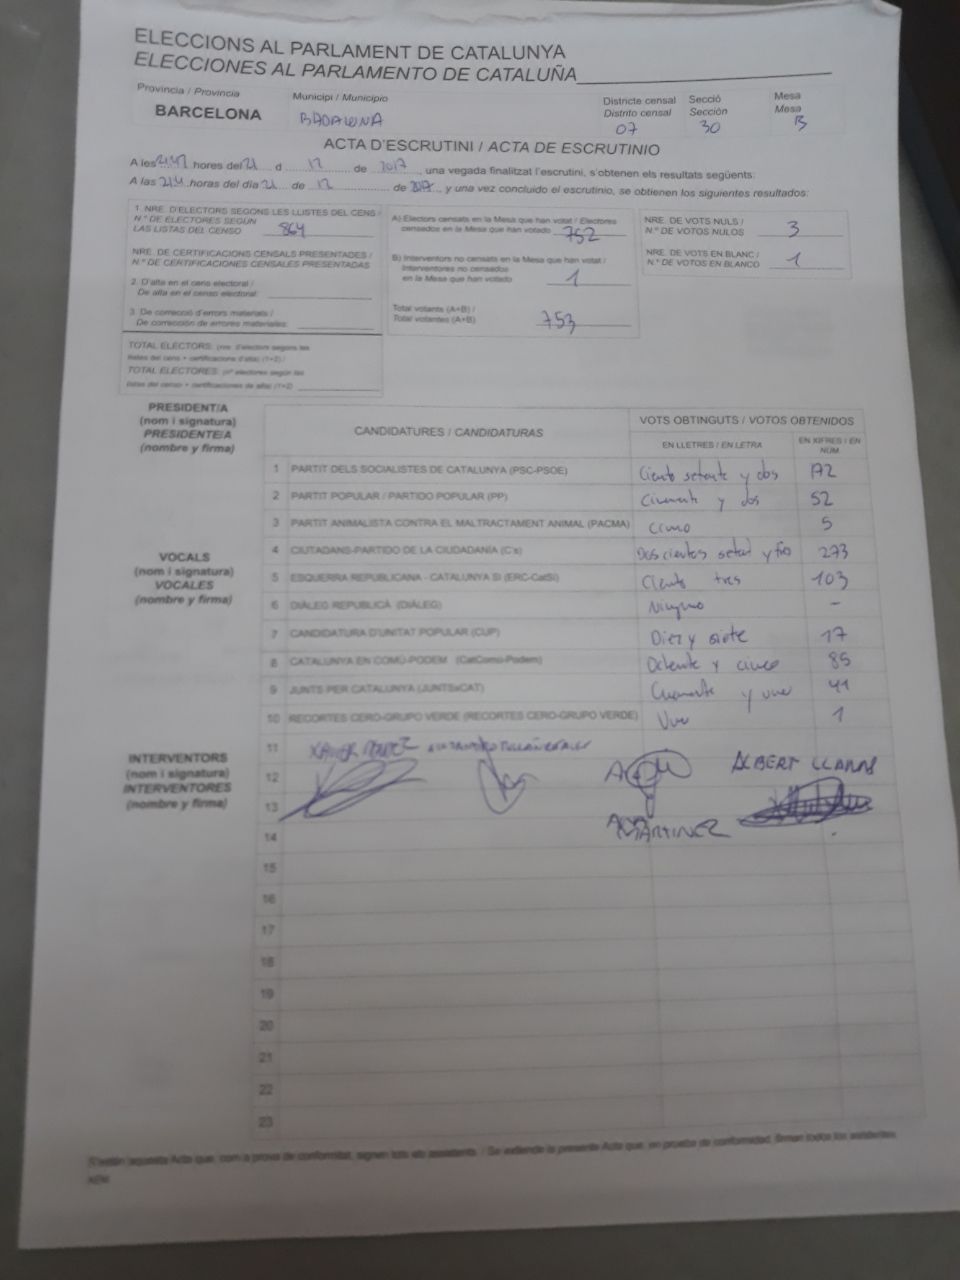 ELECCIONS AL PARLAMENT DE CATALUNYA
ELECCIONES AL PARLAMENTO DE CATALUÑA
Província / Provincia
BARCELONA
Municipi / Municipio
BADALONA
Districte censal
Distrito censal
07
Secció
Sección
30
Mesa
Mesa
B
ACTA D'ESCRUTINI / ACTA DE ESCRUTINIO
A les 21:42 hores del 21 d 12 de 2017, una vegada finalitzat l'escrutini, s'obtenen els resultats següents:
A las horas del día 21 de 12 de 2017, y una vez concluido el escrutinio, se obtienen los siguientes resultados:
1. NRE. D'ELECTORS SEGONS LES LLISTES DEL CENS /
N.º DE ELECTORES SEGÚN
LAS LISTAS DEL CENSO 864
NRE. DE CERTIFICACIONS CENSALS PRESENTADES /
N.º DE CERTIFICACIONES CENSALES PRESENTADAS
2. D'alta en el cens electoral /
De alta en el censo electoral:
3. De correcció d'errors materials /
De corrección de errores materiales:
TOTAL ELECTORS: (nre. d'electors segons les
llistes del cens + certificacions d'alta) (1+2) /
TOTAL ELECTORES: (nº electores según las
listas del censo + certificaciones de alta) (1+2)
A) Electors censats en la Mesa que han votat / Electores
censados en la Mesa que han votado 752
B) Interventors no censats en la Mesa que han votat /
Interventores no censados
en la Mesa que han votado 1
Total votants (A+B) /
Total votantes (A+B) 753
NRE. DE VOTS NULS /
N.º DE VOTOS NULOS 3
NRE. DE VOTS EN BLANC /
N.º DE VOTOS EN BLANCO 1
PRESIDENT/A
(nom i signatura)
PRESIDENTE/A
(nombre y firma)
VOCALS
(nom i signatura)
VOCALES
(nombre y firma)
INTERVENTORS
(nom i signatura)
INTERVENTORES
(nombre y firma)
CANDIDATURES / CANDIDATURAS
VOTS OBTINGUTS / VOTOS OBTENIDOS
EN LLETRES / EN LETRA
EN XIFRES / EN NÚM.
1 PARTIT DELS SOCIALISTES DE CATALUNYA (PSC-PSOE) Ciento setenta y dos 172
2 PARTIT POPULAR / PARTIDO POPULAR (PP) Cincuenta y dos 52
3 PARTIT ANIMALISTA CONTRA EL MALTRACTAMENT ANIMAL (PACMA) Cinco 5
4 CIUTADANS-PARTIDO DE LA CIUDADANÍA (C's) Doscientos y 273
5 ESQUERRA REPUBLICANA - CATALUNYA SÍ (ERC-CatSí) Ciento tres 103
6 DIÀLEG REPUBLICÀ (DIÀLEG) Ninguno -
7 CANDIDATURA D'UNITAT POPULAR (CUP) Diez y siete 17
8 CATALUNYA EN COMÚ-PODEM (CatComú-Podem) Ochenta y cinco 85
9 JUNTS PER CATALUNYA (JUNTSxCAT) Cuarenta y uno 41
10 RECORTES CERO-GRUPO VERDE (RECORTES CERO-GRUPO VERDE) Uno 1
11
12 ALBERT LLANAS
13 MARTINEZ
14
15
16
17
18
19
20
21
22
23
S'estén aquesta Acta que, com a prova de conformitat, signen tots els assistents. / Se extiende la presente Acta que, en prueba de conformidad, firman todos los asistentes.